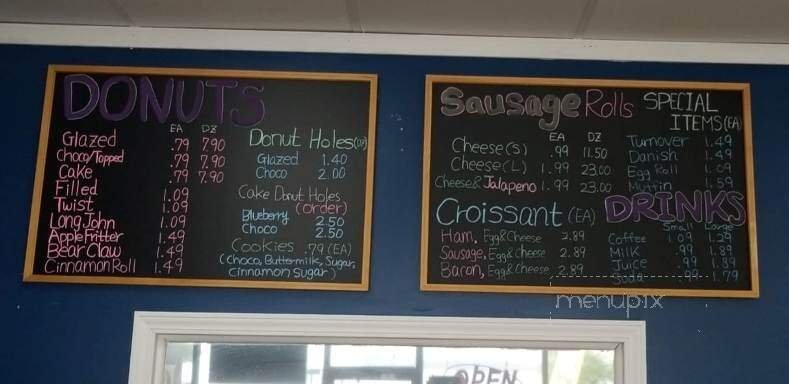 DONUTS
EA DZ
Glazed .79 7.90
Choco/Topped .79 7.90
Cake .79 7.90
Filled
Twist 1.09
Long John 1.09
Apple Fritter 1.49
Bear Claw 1.49
Cinnamon Roll 1.49
Donut Holes
Glazed 1.40
Choco 2.00
Cake Donut Holes
(order)
Blueberry 2.50
Choco 2.50
Cookies .79 (EA)
(Choco, Buttermilk, Sugar,
Cinnamon Sugar)
Sausage Rolls
EA DZ
Cheese(S) .99 11.50
Cheese(L) 1.99 23.00
Cheese& Jalapeno 1.99 23.00
Croissant (EA)
Ham, Egg&Cheese 2.89
Sausage, Egg& Cheese 2.89
Bacon, Egg& Cheese 2.89
SPECIAL
ITEMS(EA)
Turnover 1.49
Danish 1.49
Egg Roll 1.09
Muffin 1.59
DRINKS
Small Large
Coffee 1.09 1.29
Milk .99 1.89
Juice .99 1.89
Soda .99 1.79
menupix
OPEN